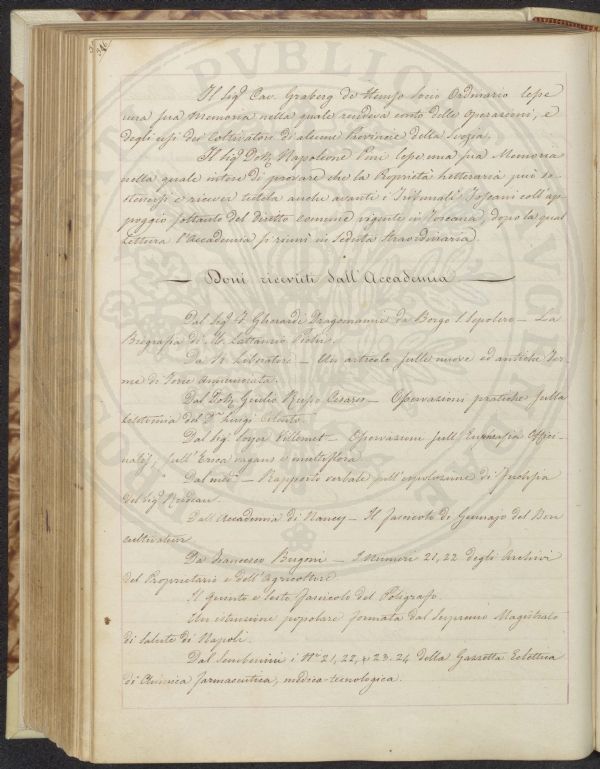 346
Il Sig.r Cav. Graberg de Hemso socio Ordinario lesse
una sua Memoria nella quale rendeva conto delle operazioni, e
degli usi dei Coltivatori di alcune Provincie della Svezia.
Il Sig.r Dott. Napoleone Pini lesse una sua Memoria
nella quale intese di provare che la Proprietà letteraria può so-
stenersi e ricever tutela anche avanti i Tribunali Toscani coll'ap-
poggio soltanto del Diritto comune vigente in Toscana, dopo la qual
Lettura l'Accademia si riunì in Seduta straordinaria.
— Doni ricevuti dall'Accademia —
Dal Sig.r F. Gherardi Dragomanni da Borgo S. Sepolcro — La
Biografia di M. Lattanzio
Da R. Liberatore — Un articolo sulle nuove ed antiche Ter-
me di Torre Annunziata.
Dal Dott. Giulio — Osservazioni pratiche sulla
del D.r Luigi
Dal Sig. Villemet — Osservazioni sull'Eufrasia Offici-
nalis, sull'Erica vagans e multiflora
Dal med.o — Rapporto verbale sull'esposizione di
del Sig.r
Dall'Accademia di Nancy — Il fascicolo di Gennajo del Bon
cultivateur
Da Francesco — I Numeri 21, 22 degli Archivi
del Proprietario e dell'Agricoltore.
Il Quinto e Sesto fascicolo del Poligrafo.
Un istruzione popolare formata dal Supremo Magistrato
di Salute di Napoli.
Dal Sembenini i N.i 21, 22, e 23-24 della Gazzetta Eclettica
di Chimica farmaceutica, medica-tecnologica.